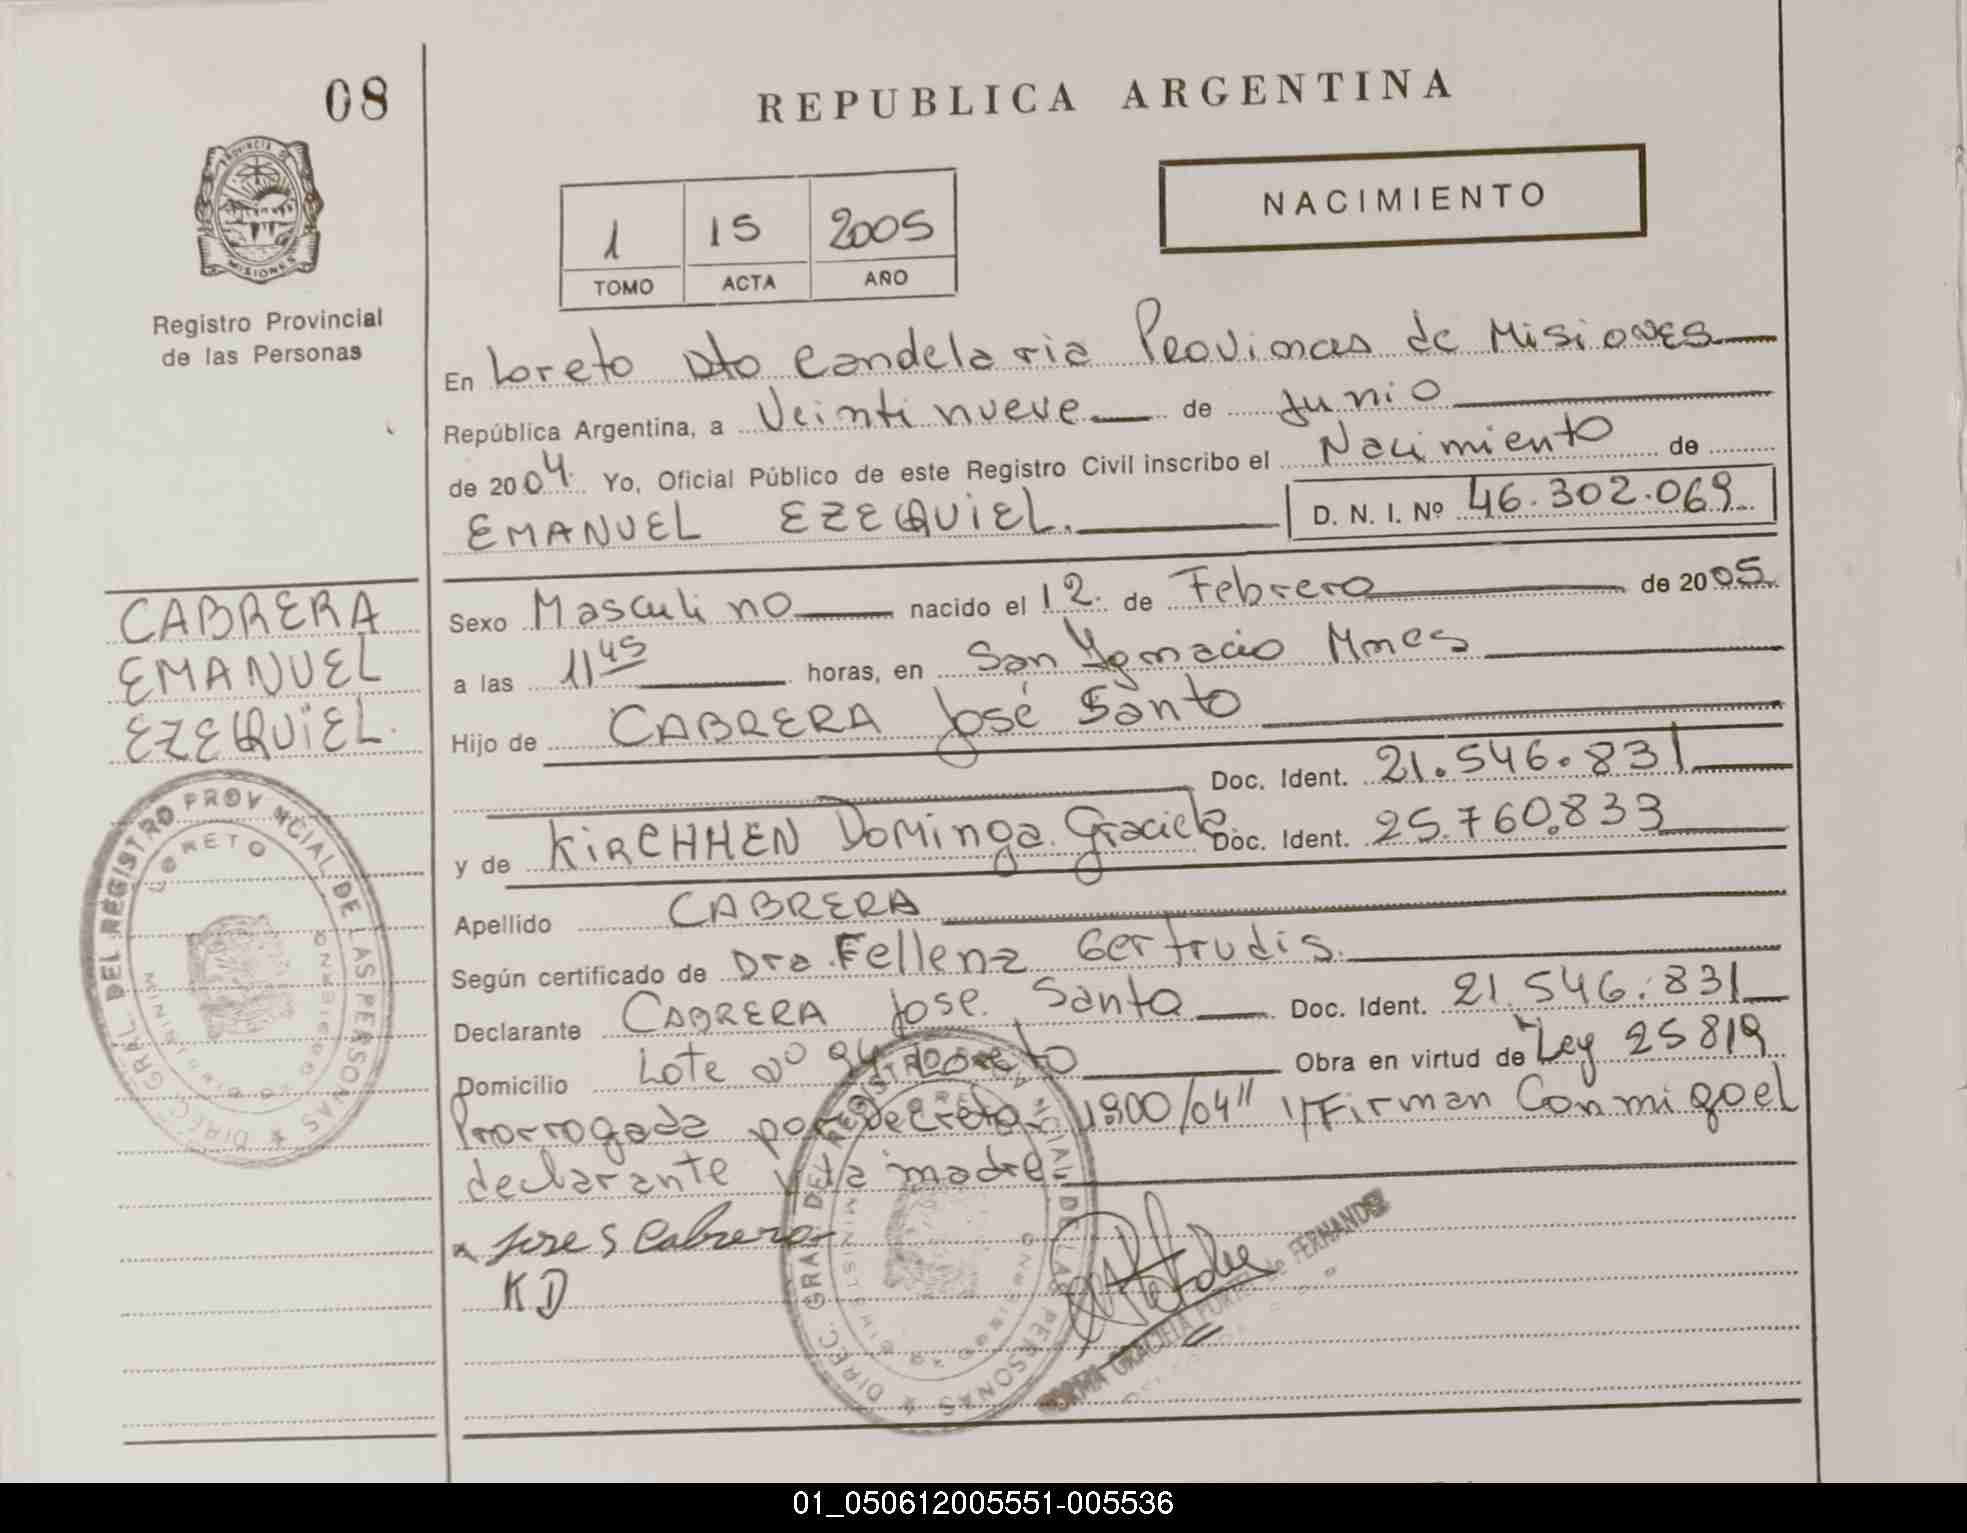 08
REPUBLICA ARGENTINA
NACIMIENTO
1 15 2005
TOMO ACTA AÑO
PROVINCIA DE
MISIONES
Registro Provincial
de las Personas
En Loreto Dto Candelaria Provincas de Misiones
República Argentina, a Veinti nueve de Junio
de 2004. Yo, Oficial Público de este Registro Civil inscribo el Nacimiento de
EMANUEL EZEQUIEL. D. N. I. Nº 46.302.069
CABRERA
EMANUEL
EZEQUIEL.
Sexo Masculino nacido el 12. de Febrero de 2005
a las 11 45 horas, en San Ygnacio Mnes
Hijo de CABRERA José Santo
Doc. Ident. 21.546.831
y de KIRCHHEN Dominga Graciela Doc. Ident. 25.760.833
Apellido CABRERA
Según certificado de Dra. Fellenz Gertrudis.
Declarante CABRERA Jose Santo Doc. Ident. 21.546.831
Domicilio Lote nº 94 Loreto Obra en virtud de Ley 25819
Prorrogada por Decreto 1800/04" //Firman Conmigo el
declarante y la madre
Jose S Cabrera
KD
DIREC. GRAL. DEL REGISTRO PROVINCIAL DE LAS PERSONAS
LORETO
DIREC. GRAL. DEL REGISTRO PROVINCIAL DE LAS PERSONAS
GRACIELA de FERNANDEZ
01_050612005551-005536